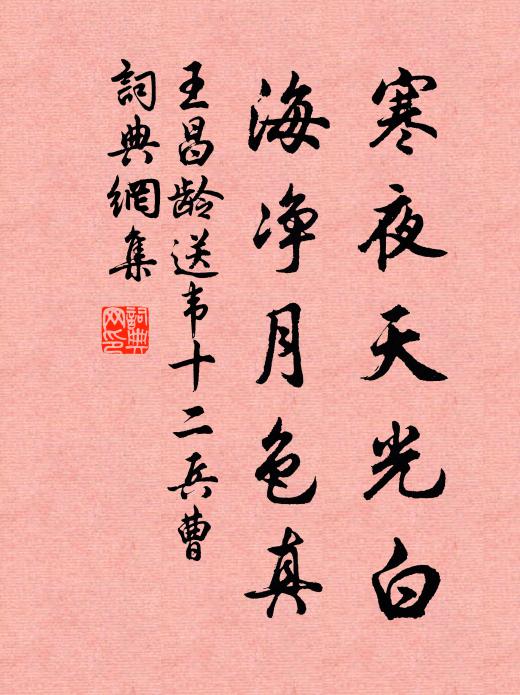 寒夜天光白
海净月色真
王昌龄送韦十二兵曹
詞典網集
詞典网印